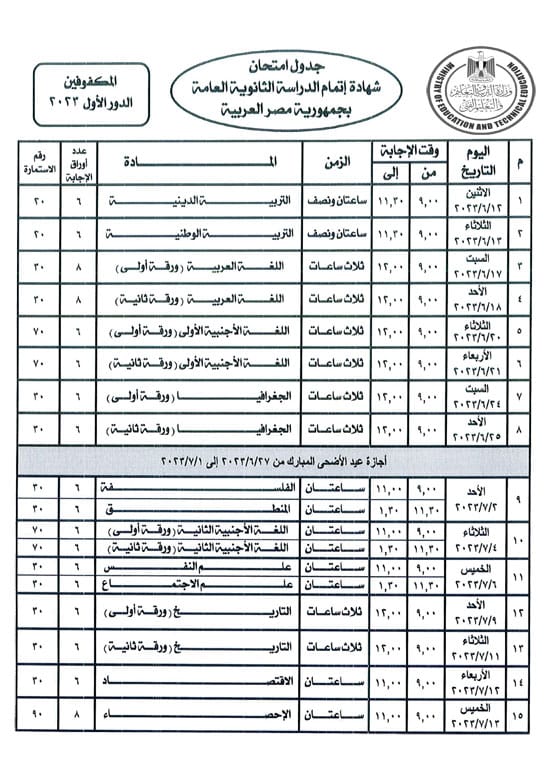 جدول امتحان
شهادة إتمام الدراسة الثانوية العامة
بجمهورية مصر العربية
المكفوفين
الدور الأول ٢٠٢٣
وزارة التربية والتعليم
والتعليم الفني
MINISTRY OF EDUCATION AND TECHNICAL EDUCATION
م اليوم التاريخ وقت الإجابة من إلى الزمن المـــادة عدد أوراق الإجابة رقم الاستمارة
١ الاثنين ٢٠٢٣/٦/١٢ ٩,٠٠ ١١,٣٠ ساعتان ونصف التربية الدينية ٦ ٢٠
٢ الثلاثاء ٢٠٢٣/٦/١٣ ٩,٠٠ ١١,٣٠ ساعتان ونصف التربية الوطنية ٦ ٢٠
٣ السبت ٢٠٢٣/٦/١٧ ٩,٠٠ ١٢,٠٠ ثلاث ساعات اللغة العربية (ورقة أولى) ٨ ٣٠
٤ الأحد ٢٠٢٣/٦/١٨ ٩,٠٠ ١٢,٠٠ ثلاث ساعات اللغة العربية (ورقة ثانية) ٨ ٣٠
٥ الثلاثاء ٢٠٢٣/٦/٢٠ ٩,٠٠ ١٢,٠٠ ثلاث ساعات اللغة الأجنبية الأولى (ورقة أولى) ٦ ٧٠
٦ الأربعاء ٢٠٢٣/٦/٢١ ٩,٠٠ ١٢,٠٠ ثلاث ساعات اللغة الأجنبية الأولى (ورقة ثانية) ٦ ٧٠
٧ السبت ٢٠٢٣/٦/٢٤ ٩,٠٠ ١٢,٠٠ ثلاث ساعات الجغرافيا (ورقة أولى) ٦ ٣٠
٨ الأحد ٢٠٢٣/٦/٢٥ ٩,٠٠ ١٢,٠٠ ثلاث ساعات الجغرافيا (ورقة ثانية) ٦ ٣٠
أجازة عيد الأضحى المبارك من ٢٠٢٣/٦/٢٧ إلى ٢٠٢٣/٧/١
٩ الأحد ٢٠٢٣/٧/٢ ٩,٠٠ ١١,٠٠ ساعتان الفلسفة ٦ ٣٠
١١,٣٠ ١,٣٠ ساعتان المنطق ٦ ٣٠
١٠ الثلاثاء ٢٠٢٣/٧/٤ ٩,٠٠ ١١,٠٠ ساعتان اللغة الأجنبية الثانية (ورقة أولى) ٦ ٧٠
١١,٣٠ ١,٣٠ ساعتان اللغة الأجنبية الثانية (ورقة ثانية) ٦ ٧٠
١١ الخميس ٢٠٢٣/٧/٦ ٩,٠٠ ١١,٠٠ ساعتان علم النفس ٦ ٣٠
١١,٣٠ ١,٣٠ ساعتان علم الاجتماع ٦ ٣٠
١٢ الأحد ٢٠٢٣/٧/٩ ٩,٠٠ ١٢,٠٠ ثلاث ساعات التاريخ (ورقة أولى) ٦ ٣٠
١٣ الثلاثاء ٢٠٢٣/٧/١١ ٩,٠٠ ١٢,٠٠ ثلاث ساعات التاريخ (ورقة ثانية) ٦ ٣٠
١٤ الأربعاء ٢٠٢٣/٧/١٢ ٩,٠٠ ١١,٠٠ ساعتان الاقتصاد ٦ ٣٠
١٥ الخميس ٢٠٢٣/٧/١٣ ٩,٠٠ ١١,٠٠ ساعتان الإحصاء ٨ ٩٠